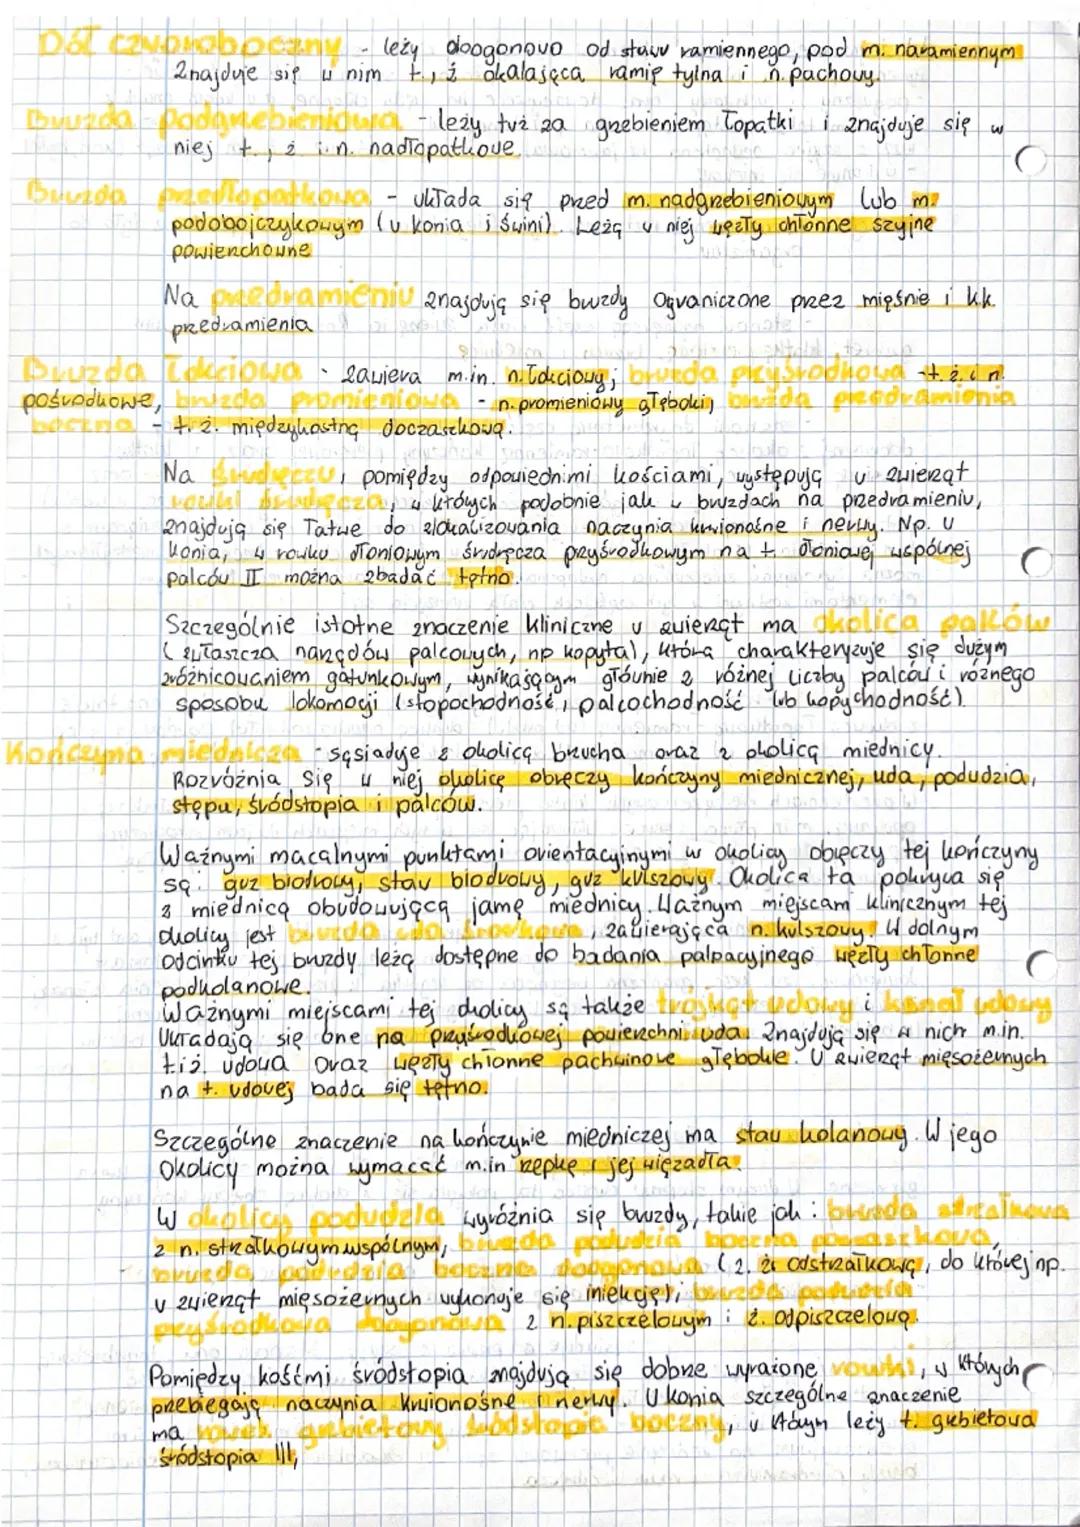 Dół czworoboczny - leży doogonowo od stawu ramiennego, pod m. naramiennym
znajduje się w nim t., ż okalająca ramię tylna i n. pachowy.
Bruzda podgrzebieniowa - leży tuż za grzebieniem łopatki i znajduje się w
niej t., ż i n. nadłopatkowe.
Bruzda przedłopatkowa - układa się przed m. nadgrzebieniowym lub m.
podobojczykowym (u konia i świni). Leżą w niej węzły chłonne szyjne
powierzchowne
Na przedramieniu znajdują się bruzdy ograniczone przez mięśnie i kk.
przedramienia
Bruzda łokciowa - zawiera m.in. n. łokciowy; bruzda przyśrodkowa - t. ż. i n.
pośrodkowe, bruzda promieniowa - n. promieniowy głęboki; bruzda przedramienia
boczna - t. ż. międzykostną doczaszkową.
Na śródręczu, pomiędzy odpowiednimi kościami, występują u zwierząt
rowki śródręcza, w których podobnie jak w bruzdach na przedramieniu,
znajdują się łatwe do zlokalizowania naczynia krwionośne i nerwy. Np. u
konia, w rowku dłoniowym śródręcza przyśrodkowym na t. dłoniowej wspólnej
palców II można zbadać tętno.
Szczególnie istotne znaczenie kliniczne u zwierząt ma okolica palców
(zwłaszcza narządów palcowych, np kopyta), która charakteryzuje się dużym
zróżnicowaniem gatunkowym, wynikającym głównie z różnej liczby palców i różnego
sposobu lokomocji (stopochodność, palcochodność lub kopychodność).
Kończyna miednicza - sąsiaduje z okolicą brzucha oraz z okolicą miednicy.
Rozróżnia się w niej okolicę obręczy kończyny miednicznej, uda, podudzia,
stępu, śródstopia i palców.
Ważnymi macalnymi punktami orientacyjnymi w okolicy obręczy tej kończyny
są: guz biodrowy, staw biodrowy, guz kulszowy. Okolica ta pokrywa się
z miednicą obudowującą jamę miednicy. Ważnym miejscam klinicznym tej
okolicy jest bruzda uda, zawierająca n. kulszowy. W dolnym
odcinku tej bruzdy leżą dostępne do badania palpacyjnego węzły chłonne
podkolanowe.
Ważnymi miejscami tej okolicy są także trójkąt udowy i kanał udowy
Układają się one na przyśrodkowej powierzchni uda. Znajdują się w nich m.in.
t i ż. udowa oraz węzły chłonne pachwinowe głębokie. U zwierząt mięsożernych
na t. udowej bada się tętno.
Szczególne znaczenie na kończynie miedniczej ma staw kolanowy. W jego
okolicy można wymacać m.in rzepkę i jej więzadła.
W okolicy podudzia wyróżnia się bruzdy, takie jak: bruzda strzałkowa
z n. strzałkowym wspólnym, bruzda podudzia boczna doczaszkowa,
bruzda podudzia boczna doogonowa (z. ż. odstrzałkową, do której np.
u zwierząt mięsożernych wykonuje się iniekcje); bruzda podudzia
przyśrodkowa doogonowa z n. piszczelowym i ż. odpiszczelową.
Pomiędzy kośćmi śródstopia znajdują się dobrze wyrażone rowki, w których
przebiegają naczynia krwionośne i nerwy. U konia szczególne znaczenie
ma rowek grzbietowy śródstopia boczny, w którym leży t. grzbietowa
śródstopia III,